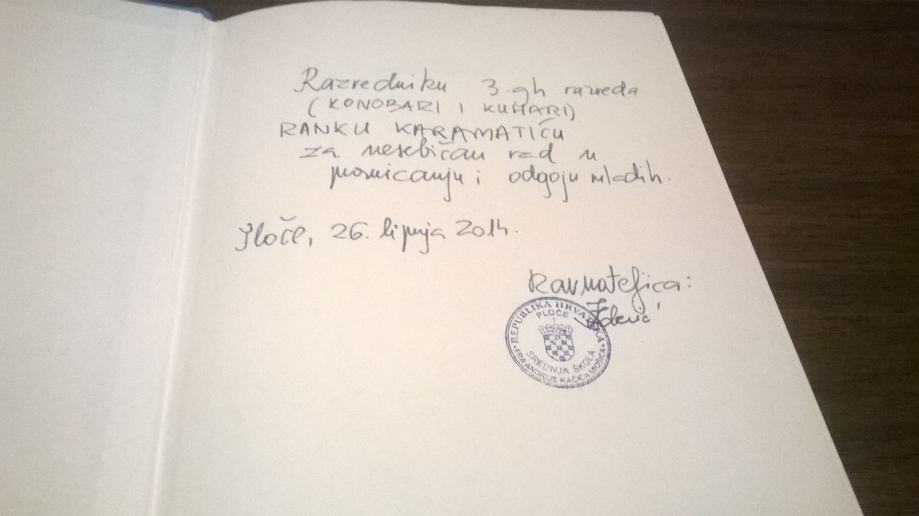 Razredniku 3.gh razreda
(KONOBARI I KUHARI)
RANKU KARAMATIĆU
za nesebičan rad u
promicanju i odgoju mladih.
Ploče, 26. lipnja 2014.
Ravnateljica:
REPUBLIKA HRVATSKA
PLOČE
SREDNJA ŠKOLA
FRA ANDRIJE KAČIĆA MIOŠIĆA